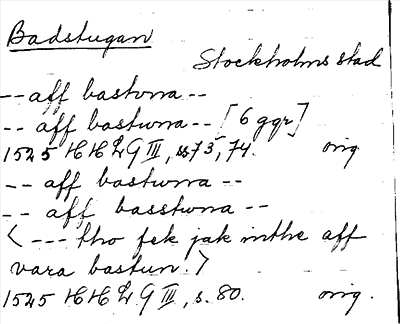 Badstugan
Stockholms stad
-- aff bastvna --
-- aff bastuna -- [6 ggr]
1525 HH 9 III, ss 73, 74. orig
-- aff bastwna --
-- aff basstwna --
< --- tho fek jak inthe aff
vara bastun. >
1525 HH 9 III, s. 80. orig.